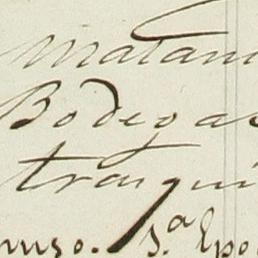 Matan
Bodegas
tranqui
nuzo. 3.ª Epo